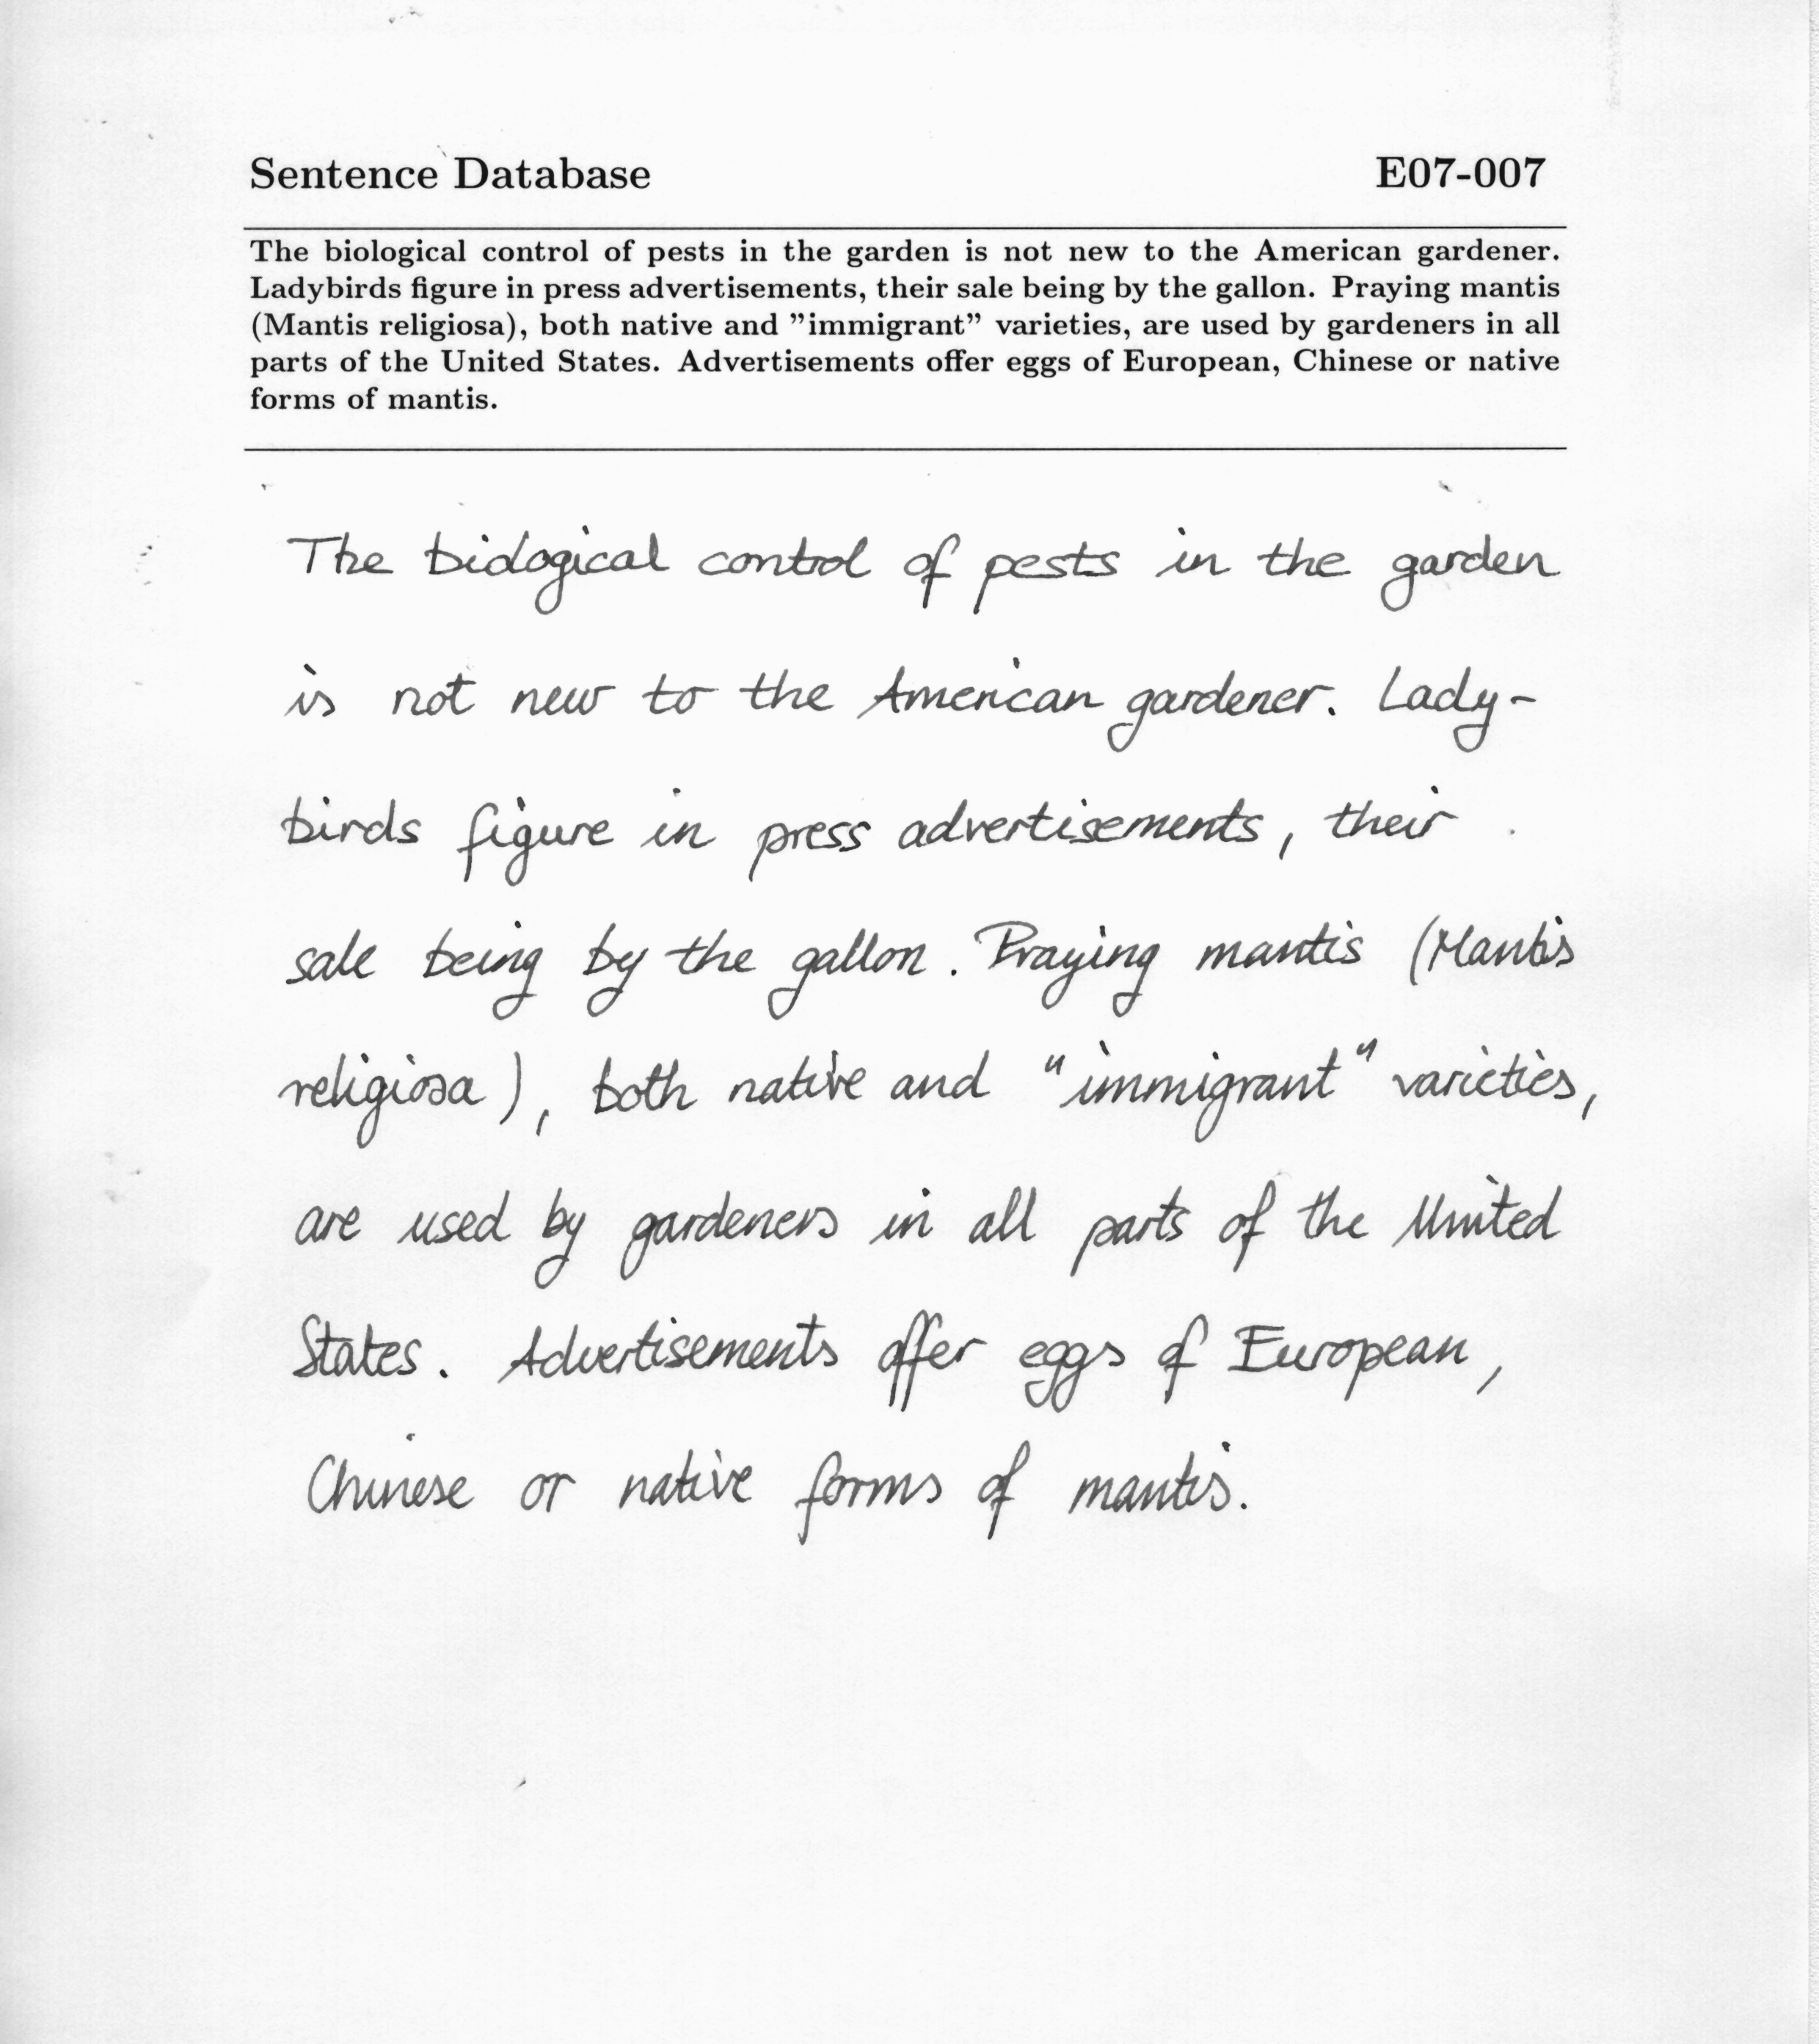 Sentence Database E07-007
The biological control of pests in the garden is not new to the American gardener.
Ladybirds figure in press advertisements, their sale being by the gallon. Praying mantis
(Mantis religiosa), both native and ”immigrant” varieties, are used by gardeners in all
parts of the United States. Advertisements offer eggs of European, Chinese or native
forms of mantis.
The biological control of pests in the garden
is not new to the American gardener. Lady-
birds figure in press advertisements, their
sale being by the gallon. Praying mantis (Mantis
religiosa), both native and "immigrant" varieties,
are used by gardeners in all parts of the United
States. Advertisements offer eggs of European,
Chinese or native forms of mantis.